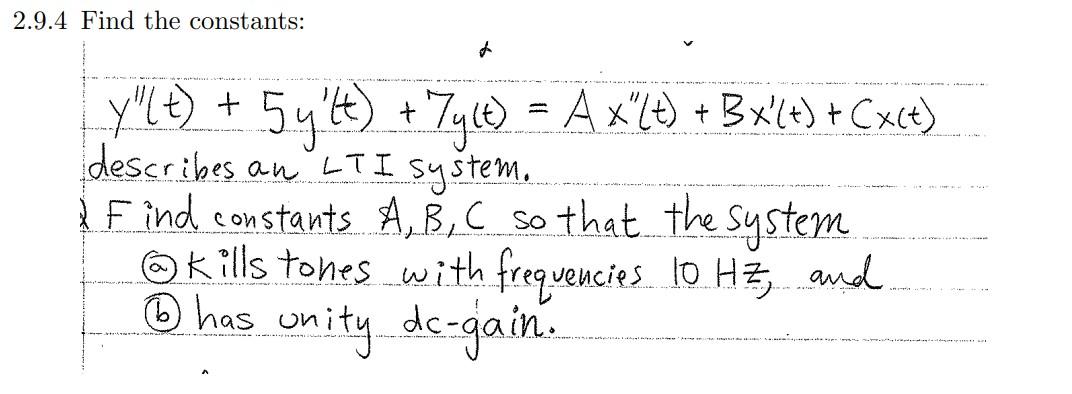 2.9.4 Find the constants:
y''(t) + 5y'(t) + 7y(t) = A x''(t) + Bx'(t) + Cx(t)
describes an LTI system.
Find constants A, B, C so that the system
ⓐ kills tones with frequencies 10 Hz, and
ⓑ has unity dc-gain.